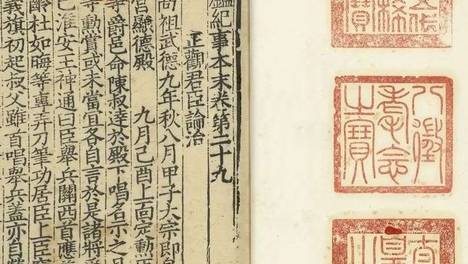 八徵耄念之寶
鑑紀事本末卷第二十九
正觀君臣論治
高祖武德九年秋八月甲子太宗即皇
宮顯德殿 九月己酉上面定勲臣
等爵邑命陳叔達於殿下唱名示之且
等勲賞或未當宜各自言於是諸將
已淮安王神通曰臣舉兵關西首應
齡杜如晦等專弄刀筆功居臣上臣
義旗初起叔父雖首唱舉兵蓋亦自